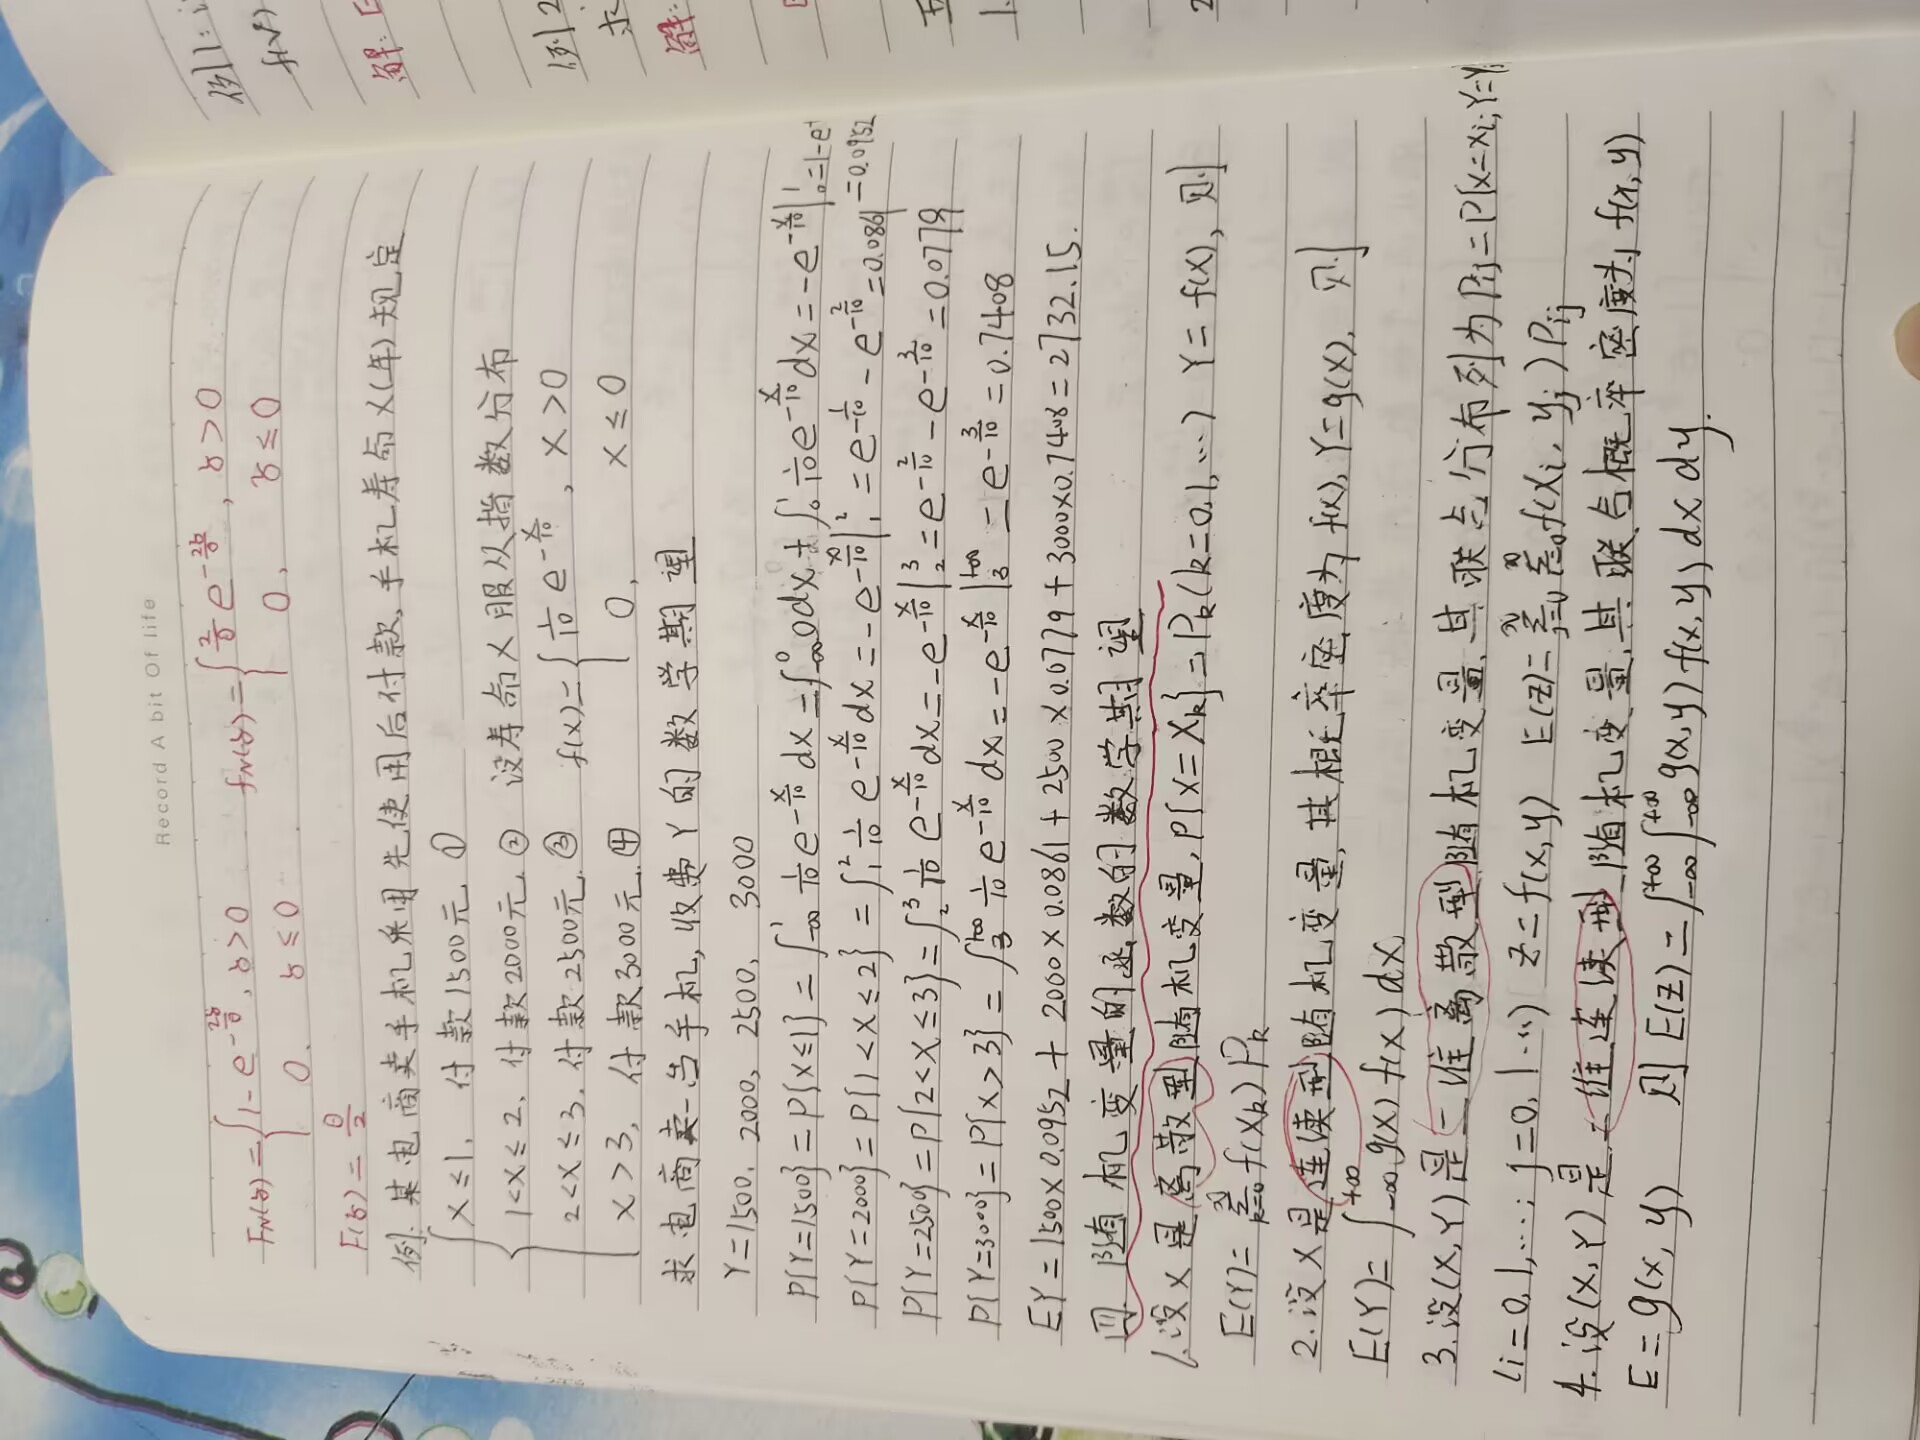 Record A bit Of life
F_N(z) = { 1-e^{-2z/θ}, z>0    f_N(z) = { 2/θ e^{-2z/θ}, z>0
0, z≤0    0, z≤0
E(z) = θ/2
例. 某电商卖手机采用先使用后付款, 手机寿命X(年)规定
{ X≤1, 付款1500元. ①
1<X≤2, 付款2000元. ② 设寿命X服从指数分布
2<X≤3, 付款2500元. ③ f(x) = { 1/10 e^{-x/10}, x>0
X>3, 付款3000元. ④    0, x≤0
求电商卖一台手机, 收费Y的数学期望
Y=1500, 2000, 2500, 3000
P{Y=1500} = P{X≤1} = ∫_{-∞}^{1} 1/10 e^{-x/10} dx = ∫_{-∞}^{0} 0dx + ∫_{0}^{1} 1/10 e^{-x/10} dx = -e^{-x/10}|_{0}^{1} = 1-e = 0.0952
P{Y=2000} = P{1<X≤2} = ∫_{1}^{2} 1/10 e^{-x/10} dx = -e^{-x/10}|_{1}^{2} = e^{-1/10} - e^{-2/10} = 0.0861
P{Y=2500} = P{2<X≤3} = ∫_{2}^{3} 1/10 e^{-x/10} dx = -e^{-x/10}|_{2}^{3} = e^{-2/10} - e^{-3/10} = 0.0779
P{Y=3000} = P{X>3} = ∫_{3}^{+∞} 1/10 e^{-x/10} dx = -e^{-x/10}|_{3}^{+∞} = e^{-3/10} = 0.7408
EY = 1500×0.0952 + 2000×0.0861 + 2500×0.0779 + 3000×0.7408 = 2732.15.
四. 随机变量的函数的数学期望
1. 设X是离散型随机变量, P{X=X_k} = P_k (k=0.1,…) Y=f(x), 则
E(Y) = ∑_{k=0}^{∞} f(X_k) P_k
2. 设X是连续型随机变量, 其概率密度为f(x), Y=g(x), 则
E(Y) = ∫_{-∞}^{+∞} g(x) f(x) dx
3. 设(X,Y)是二维离散型随机变量, 其联合分布列为P_{ij} = P{X=X_i, Y=Y
(i=0,1,…; j=0,1…) Z=f(x,y) E(Z) = ∑∑ f(X_i, y_j) P_{ij}
4. 设(X,Y)是二维连续型随机变量, 其联合概率密度为f(x,y)
E=g(x,y) 则 E(Z) = ∫_{-∞}^{+∞} ∫_{-∞}^{+∞} g(x,y) f(x,y) dx dy.
例1:
解:
例2
求
解: